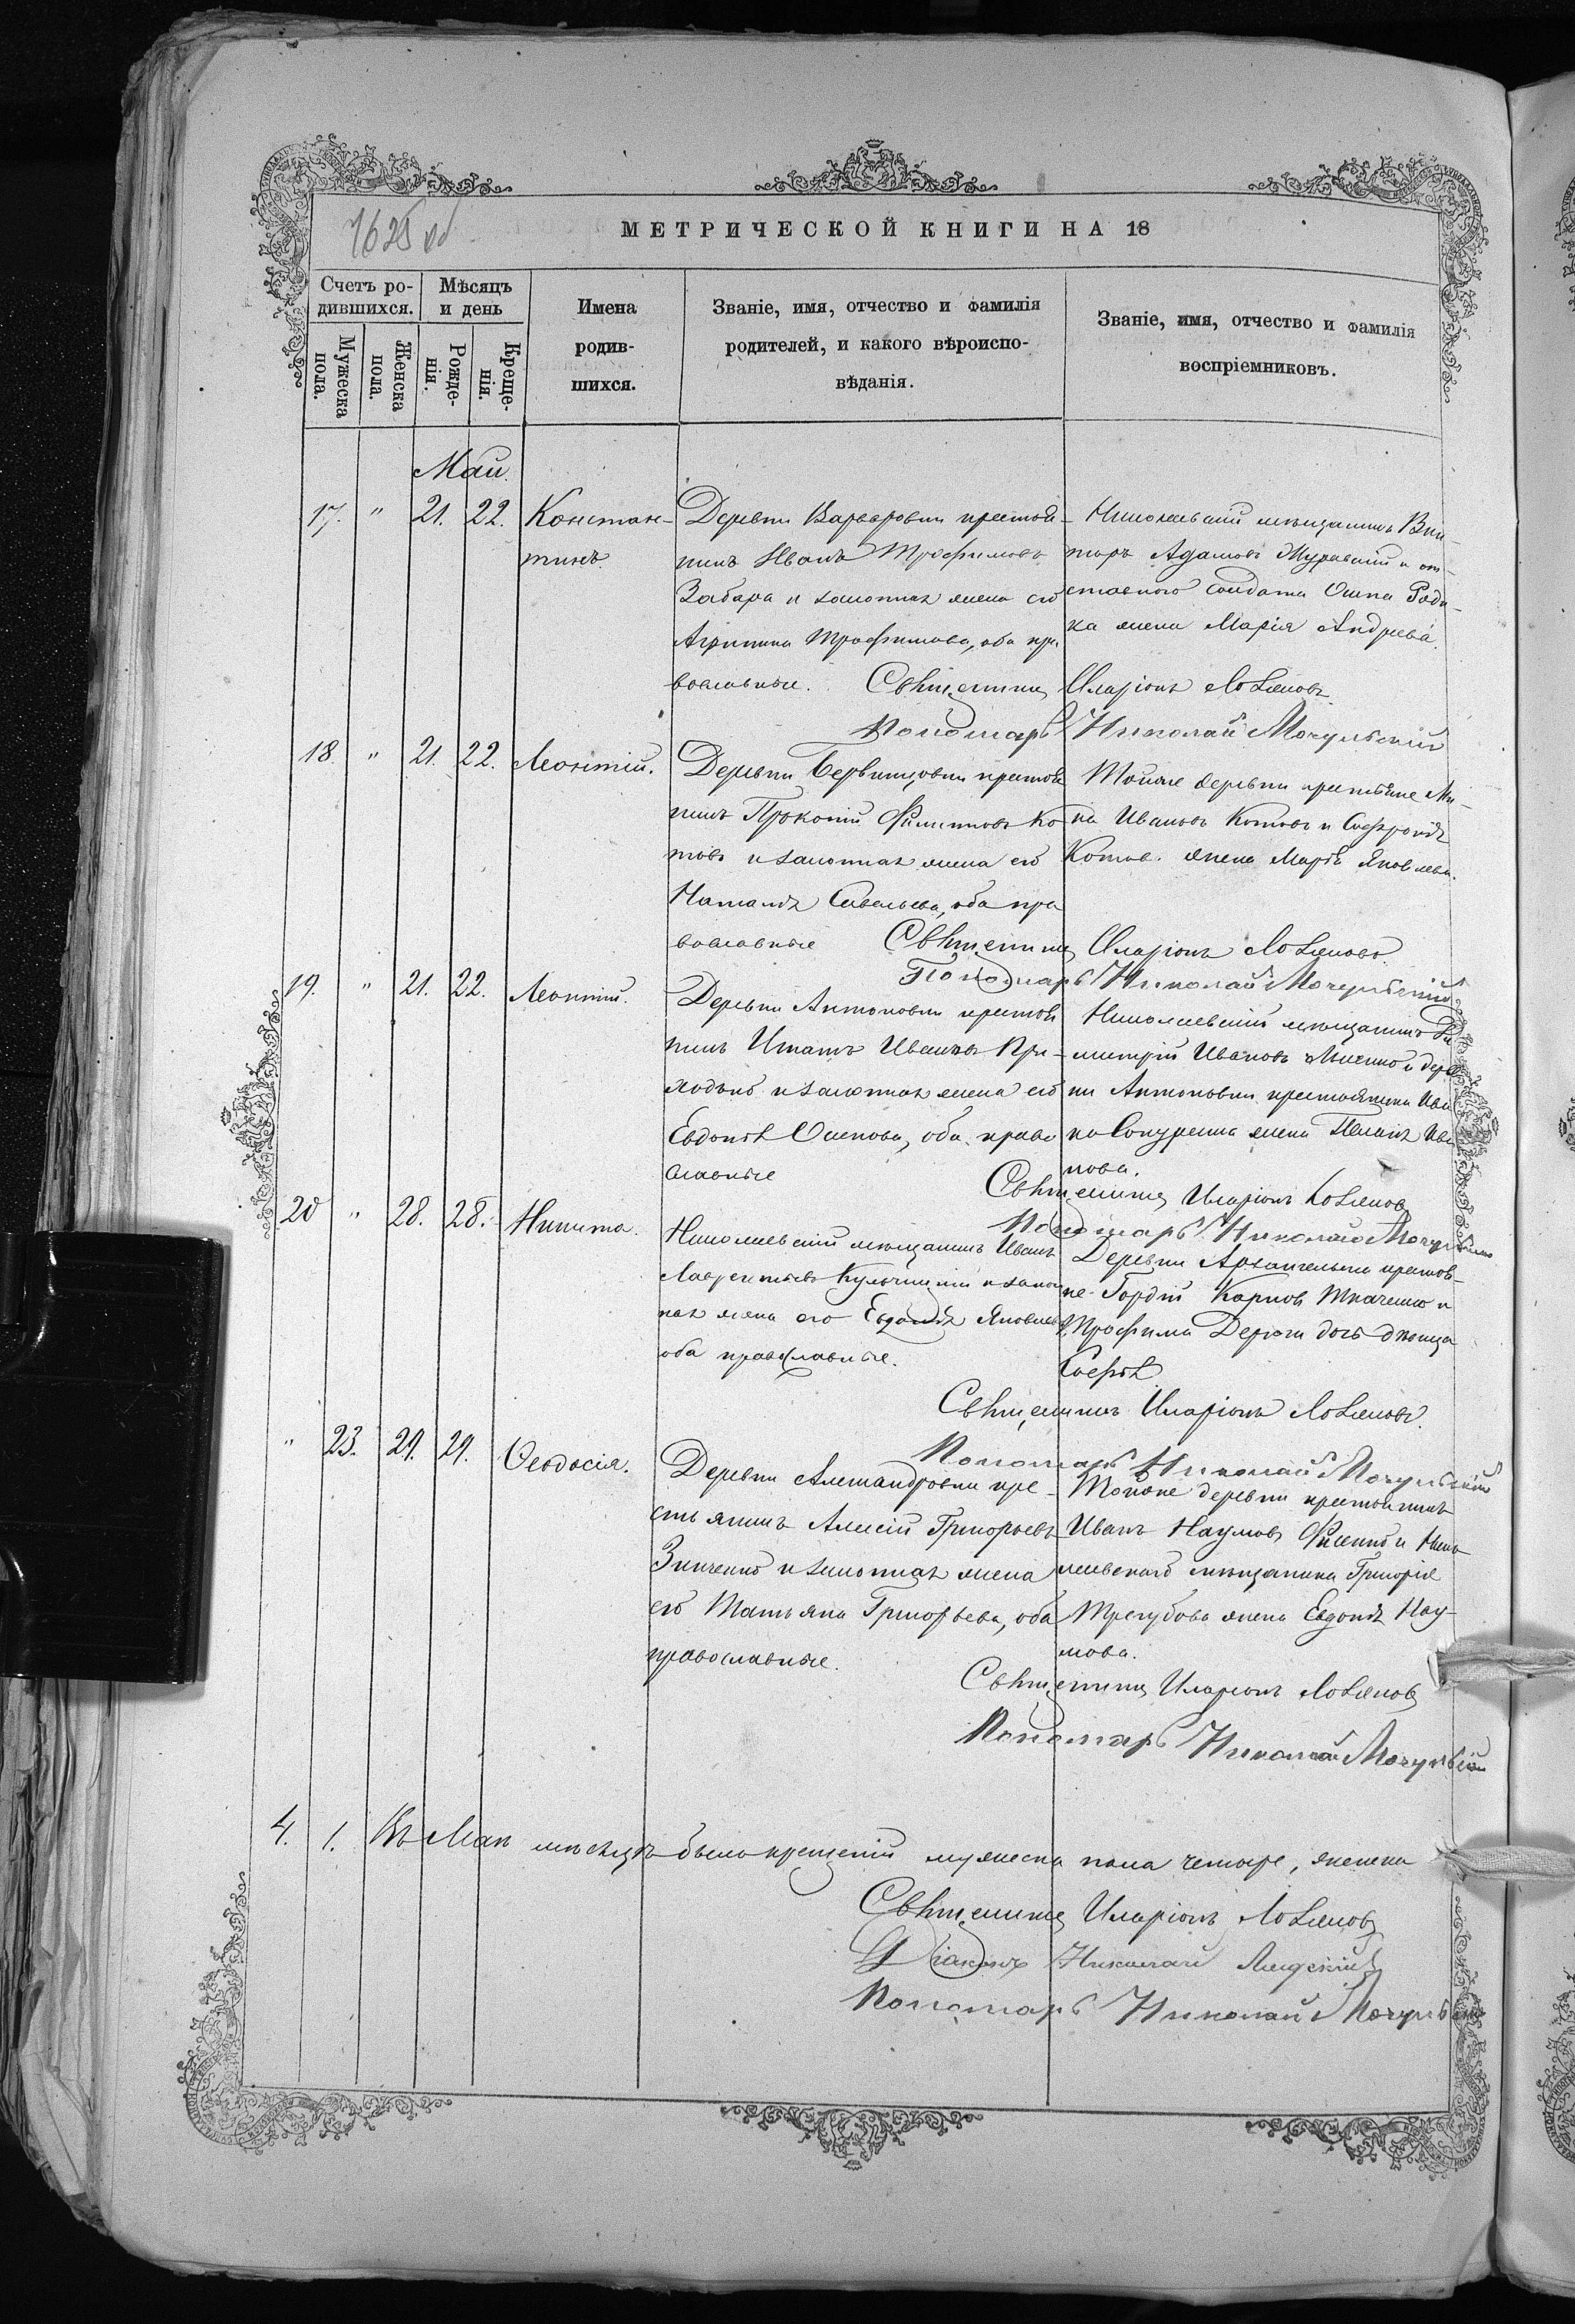 1625 об
МЕТРИЧЕСКОЙ КНИГИ НА 18
Счетъ ро-
дившихся.
Мѣсяцъ
и день
Мужеска
пола.
Женска
пола.
Рожде-
нія.
Креще-
нія.
Имена
родив-
шихся.
Званіе, имя, отчество и фамилія
родителей, и какого вѣроиспо-
вѣданія.
Званіе, имя, отчество и фамилія
воспріемниковъ.
Май.
17. " 21. 22. Констан-
тинъ.
Деревни Варваровки крестья-
нинъ Иванъ Трофимовъ
Забара и законная жена его
Агрипина Трофимова, оба пра
вославные.
Николаевскій мѣщанинъ Вик-
торъ Адамовъ Журавскій и от-
ставного солдата Осипа
жена Марія Андреева.
Священникъ Иларіонъ Ловяновъ
Пономарь Николай Мочульскій
18. " 21. 22. Леонтій.
Деревни крестья
нинъ Прокопій Филипповъ Ко
товъ и законная жена его
Наталія Савельева, оба пра
вославные
Тойже деревни крестьяне Ми-
на Ивановъ Котовъ и Софронія
Котов. жена Марія Яковлева.
Священникъ Иларіонъ Ловяновъ.
Пономарь Николай Мочульскій
19. " 21. 22. Леонтій.
Деревни Антоновки крестья
нинъ Игнатъ Ивановъ При-
ходько и законная жена его
Евдокія Осипова, оба право
славные
Николаевскій мѣщанинъ Ди
митрій Ивановъ и дерев
ни Антоновки крестьянина Ива
на жена Пелагія Ива
нова.
Священникъ Иларіонъ Ловяновъ
Пономарь Николай Мочульскій
20 " 28. 28. Никита.
Николаевскій мѣщанинъ Иванъ
Лаврентьевъ Кульчицкій и закон
ная жена его Евдокія Яковлева
оба православные.
Деревни Архангельски крестья-
не Гордій Карповъ Ткаченко и
Трофима Дерюги дочь дѣвица
Софія.
Священникъ Иларіонъ Ловяновъ.
Пономарь Николай Мочульскій
" 23. 29. 29. Ѳеодосія.
Деревни Александровки кре-
стьянинъ Алексій Григорьевъ
Зинченко и законная жена
его Татьяна Григорьева, оба
православные.
Тойже деревни крестьянинъ
Иванъ Наумовъ и Нико
лаевскаго мѣщанина Григорія
Трегубова жена Евдокія Нау-
мова.
Священникъ Иларіонъ Ловяновъ
Пономарь Николай Мочульскій
4. 1. Въ Маѣ мѣсяцѣ было крещеній мужеска пола четыре, женска
Священникъ Иларіонъ Ловяновъ
Діаконъ Николай
Пономарь Николай Мочульскій